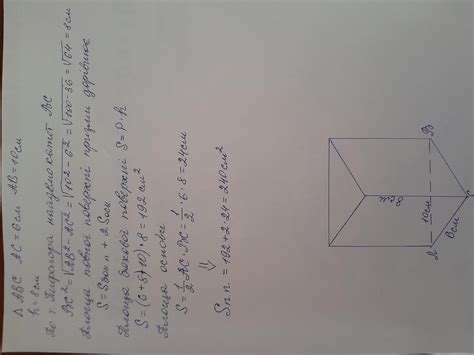 Δ ABC AC=6см AB=10см
h=8см
По т. Піфагора знайдемо катет BC
BC²=√AB²-AC²=√10²-6²=√100-36=√64=8см
Площа повної поверхні призми дорівнює
S=Sбічн п + 2Sосн
Площа бокової поверхні S=P·h
S=(6+8+10)·8=192 см²
Площа основи
S=1/2 AC·BC=1/2·6·8=24см
⇓
Sп п=192+2·24=240см²
8см
10см
6см
A
B
C